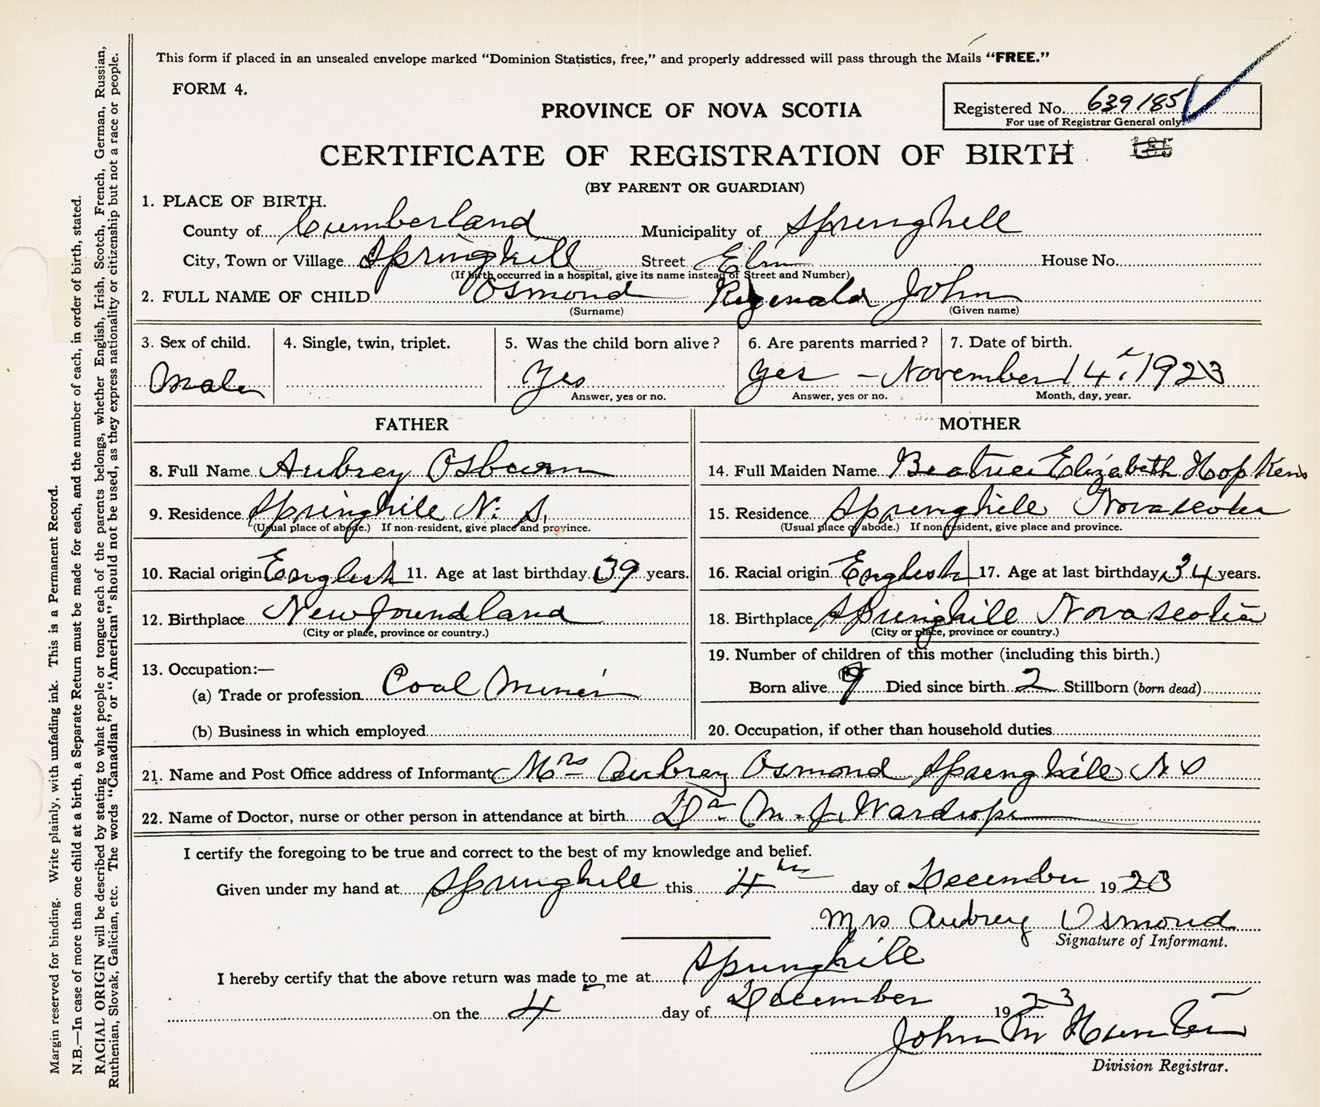 This form if placed in an unsealed envelope marked “Dominion Statistics, free,” and properly addressed will pass through the Mails “FREE.”
FORM 4.
Registered No. 639185
For use of Registrar General only
PROVINCE OF NOVA SCOTIA
185
CERTIFICATE OF REGISTRATION OF BIRTH
(BY PARENT OR GUARDIAN)
1. PLACE OF BIRTH.
County of Cumberland Municipality of Springhill
City, Town or Village Springhill Street Elm House No.
(If birth occurred in a hospital, give its name instead of Street and Number)
2. FULL NAME OF CHILD Osmond Reginald John
(Surname) (Given name)
3. Sex of child. 4. Single, twin, triplet. 5. Was the child born alive? 6. Are parents married? 7. Date of birth.
Male Yes Yes - November 14, 1923
Answer, yes or no. Answer, yes or no. Month, day, year.
FATHER MOTHER
8. Full Name Aubrey 14. Full Maiden Name Beatrice Elizabeth Hopkens
9. Residence Springhill N. S. 15. Residence Springhill Nova scotia
(Usual place of abode.) If non-resident, give place and province. (Usual place of abode.) If non-resident, give place and province.
10. Racial origin English 11. Age at last birthday 39 years. 16. Racial origin English 17. Age at last birthday 34 years.
12. Birthplace Newfoundland 18. Birthplace Springhill Nova scotia
(City or place, province or country.) (City or place, province or country.)
13. Occupation:—
(a) Trade or profession Coal Miner
(b) Business in which employed
19. Number of children of this mother (including this birth.)
Born alive 9 Died since birth 2 Stillborn (born dead)
20. Occupation, if other than household duties
21. Name and Post Office address of Informant Mrs Aubrey Osmond Springhill N S
22. Name of Doctor, nurse or other person in attendance at birth Dr M. J. Wardrope
I certify the foregoing to be true and correct to the best of my knowledge and belief.
Given under my hand at Springhill this 4 day of December 1923
Mrs Aubrey Osmond
Signature of Informant.
I hereby certify that the above return was made to me at Springhill
on the 4 day of December 1923
John M Hunter
Division Registrar.
Margin reserved for binding. Write plainly, with unfading ink. This is a Permanent Record.
N.B.—In case of more than one child at a birth, a Separate Return must be made for each, and the number of each, in order of birth, stated.
RACIAL ORIGIN will be described by stating to what people or tongue each of the parents belongs, whether English, Irish, Scotch, French, German, Russian,
Ruthenian, Slovak, Galician, etc. The words “Canadian” or “American” should not be used, as they express nationality or citizenship but not a race or people.